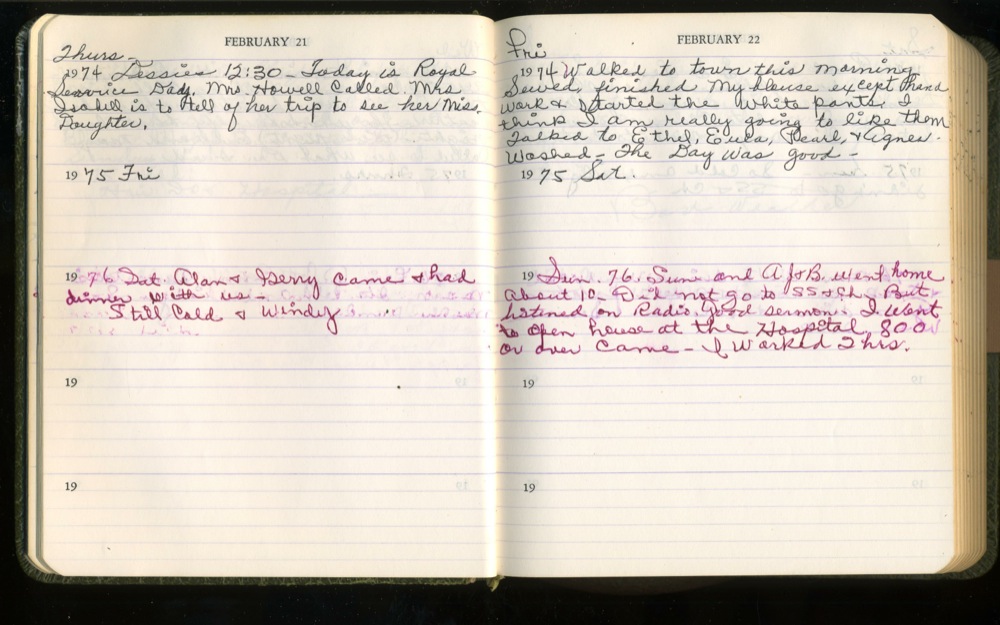 FEBRUARY 21
Thurs-
1974 Dessies 12:30 - Today is Royal
Service Day. Mrs. Howell Called. Mrs
Isabill is to tell of her trip to see her Miss.
Daughter.
1975 Fri
1976 Sat. Alan & Gerry came & had
dinner with us -
Still Cold & Windy
19
19
FEBRUARY 22
Fri
1974 Walked to town this morning
Sewed, finished my blouse except hand
work & started the white pants. I
think I am really going to like them
Talked to Ethel, Eula, Pearl, & Agnes -
Washed - The Day was good -
1975 Sat.
19 Sun. 76. Sun and A J & B. went home
about 10 - Did not go to SS & Ch. But
listened on Radio. Good sermon. I went
to open house at the Hospital, 800
or over came - I worked 2 hrs.
19
19